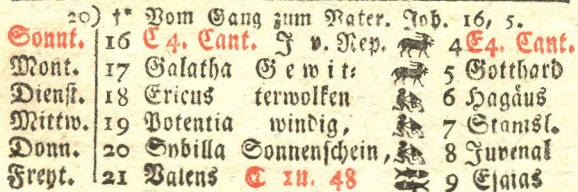 20) †* Vom Gang zum Vater. Joh. 16, 5.
Sonnt. 16 C 4. Cant. J v. Nep. 4 E4. Cant.
Mont. 17 Galatha Gewit: 5 Gotthard
Dienst. 18 Ericus terwolken 6 Hagäus
Mittw. 19 Potentia windig, 7 Stanisl.
Donn. 20 Sybilla Sonnenschein, 8 Juvenal
Freyt. 21 Valens 1U. 48 9 Esaias